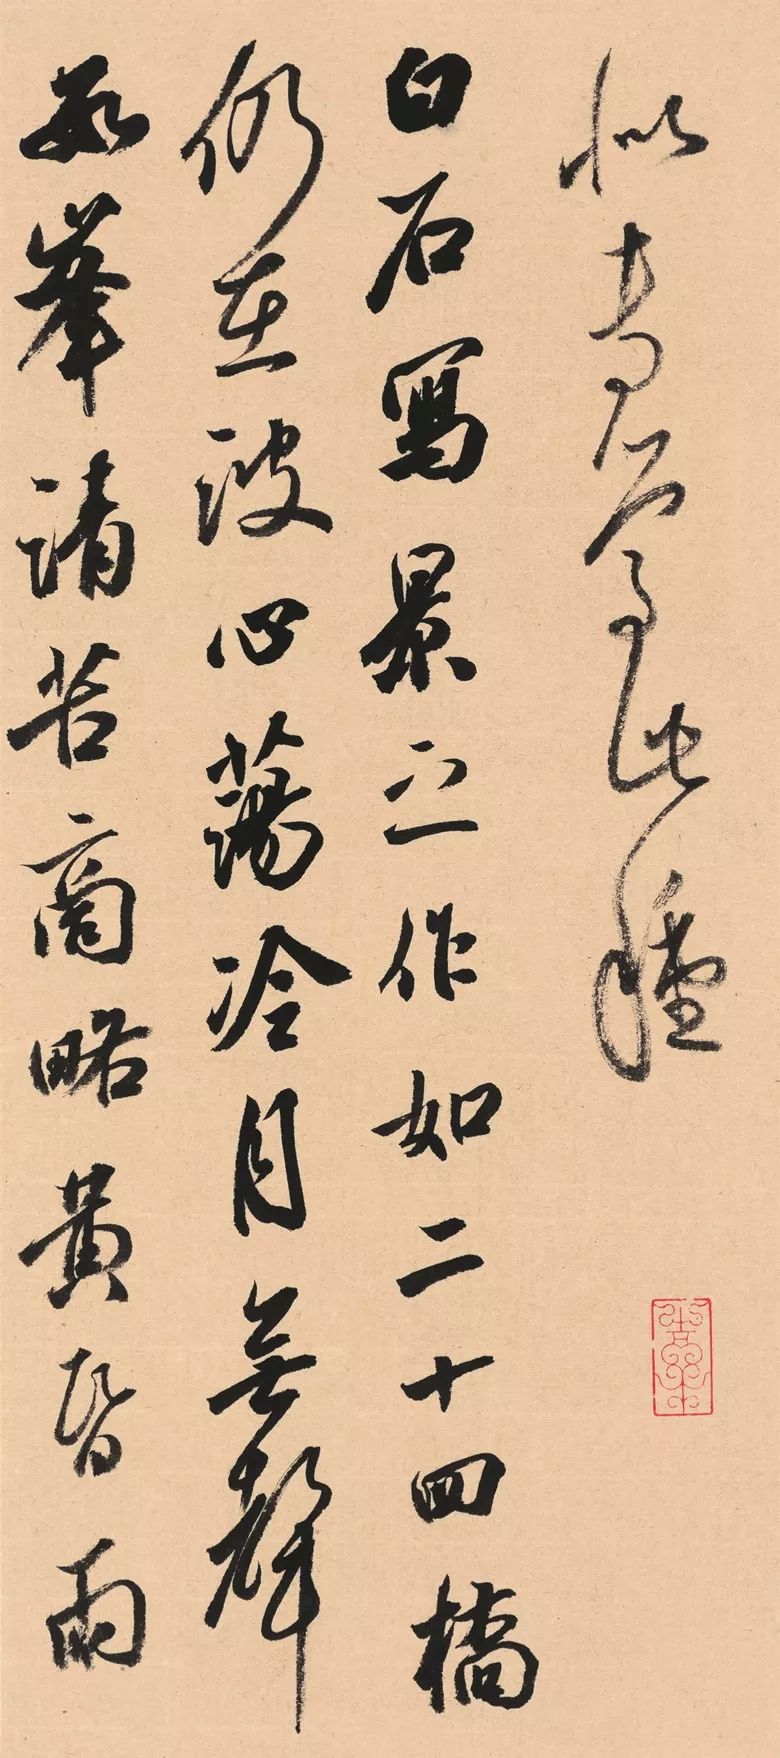 此種
白石寫景之作如二十四橋
仍在波心蕩冷月無聲
數峯清苦商略黃昏雨